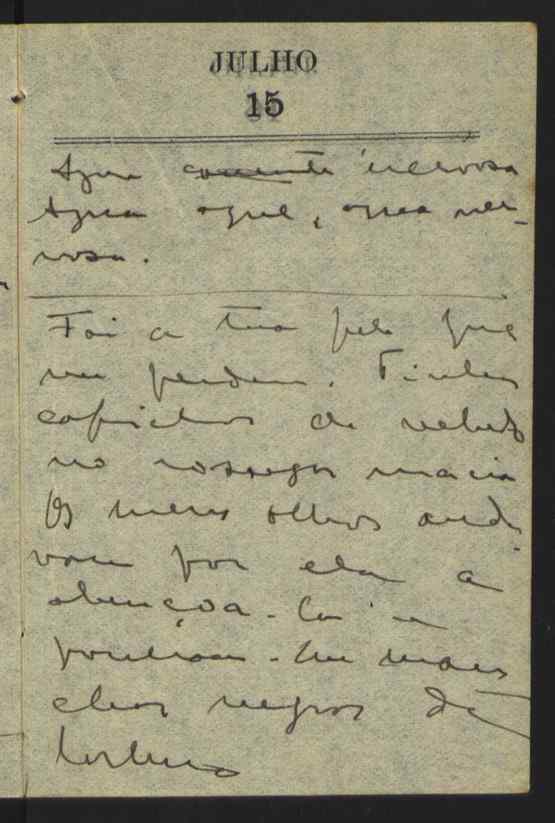 JULHO
15
Agua corrente nervosa
Agua azul, agua ner-
vosa.
Foi a tua pele que
me perdeu. Tinha
caprichos de veludo
no sossego macia
Os meus olhos anda-
vam por ela a
abençoa-la e
punham-lhe man
chas negras de